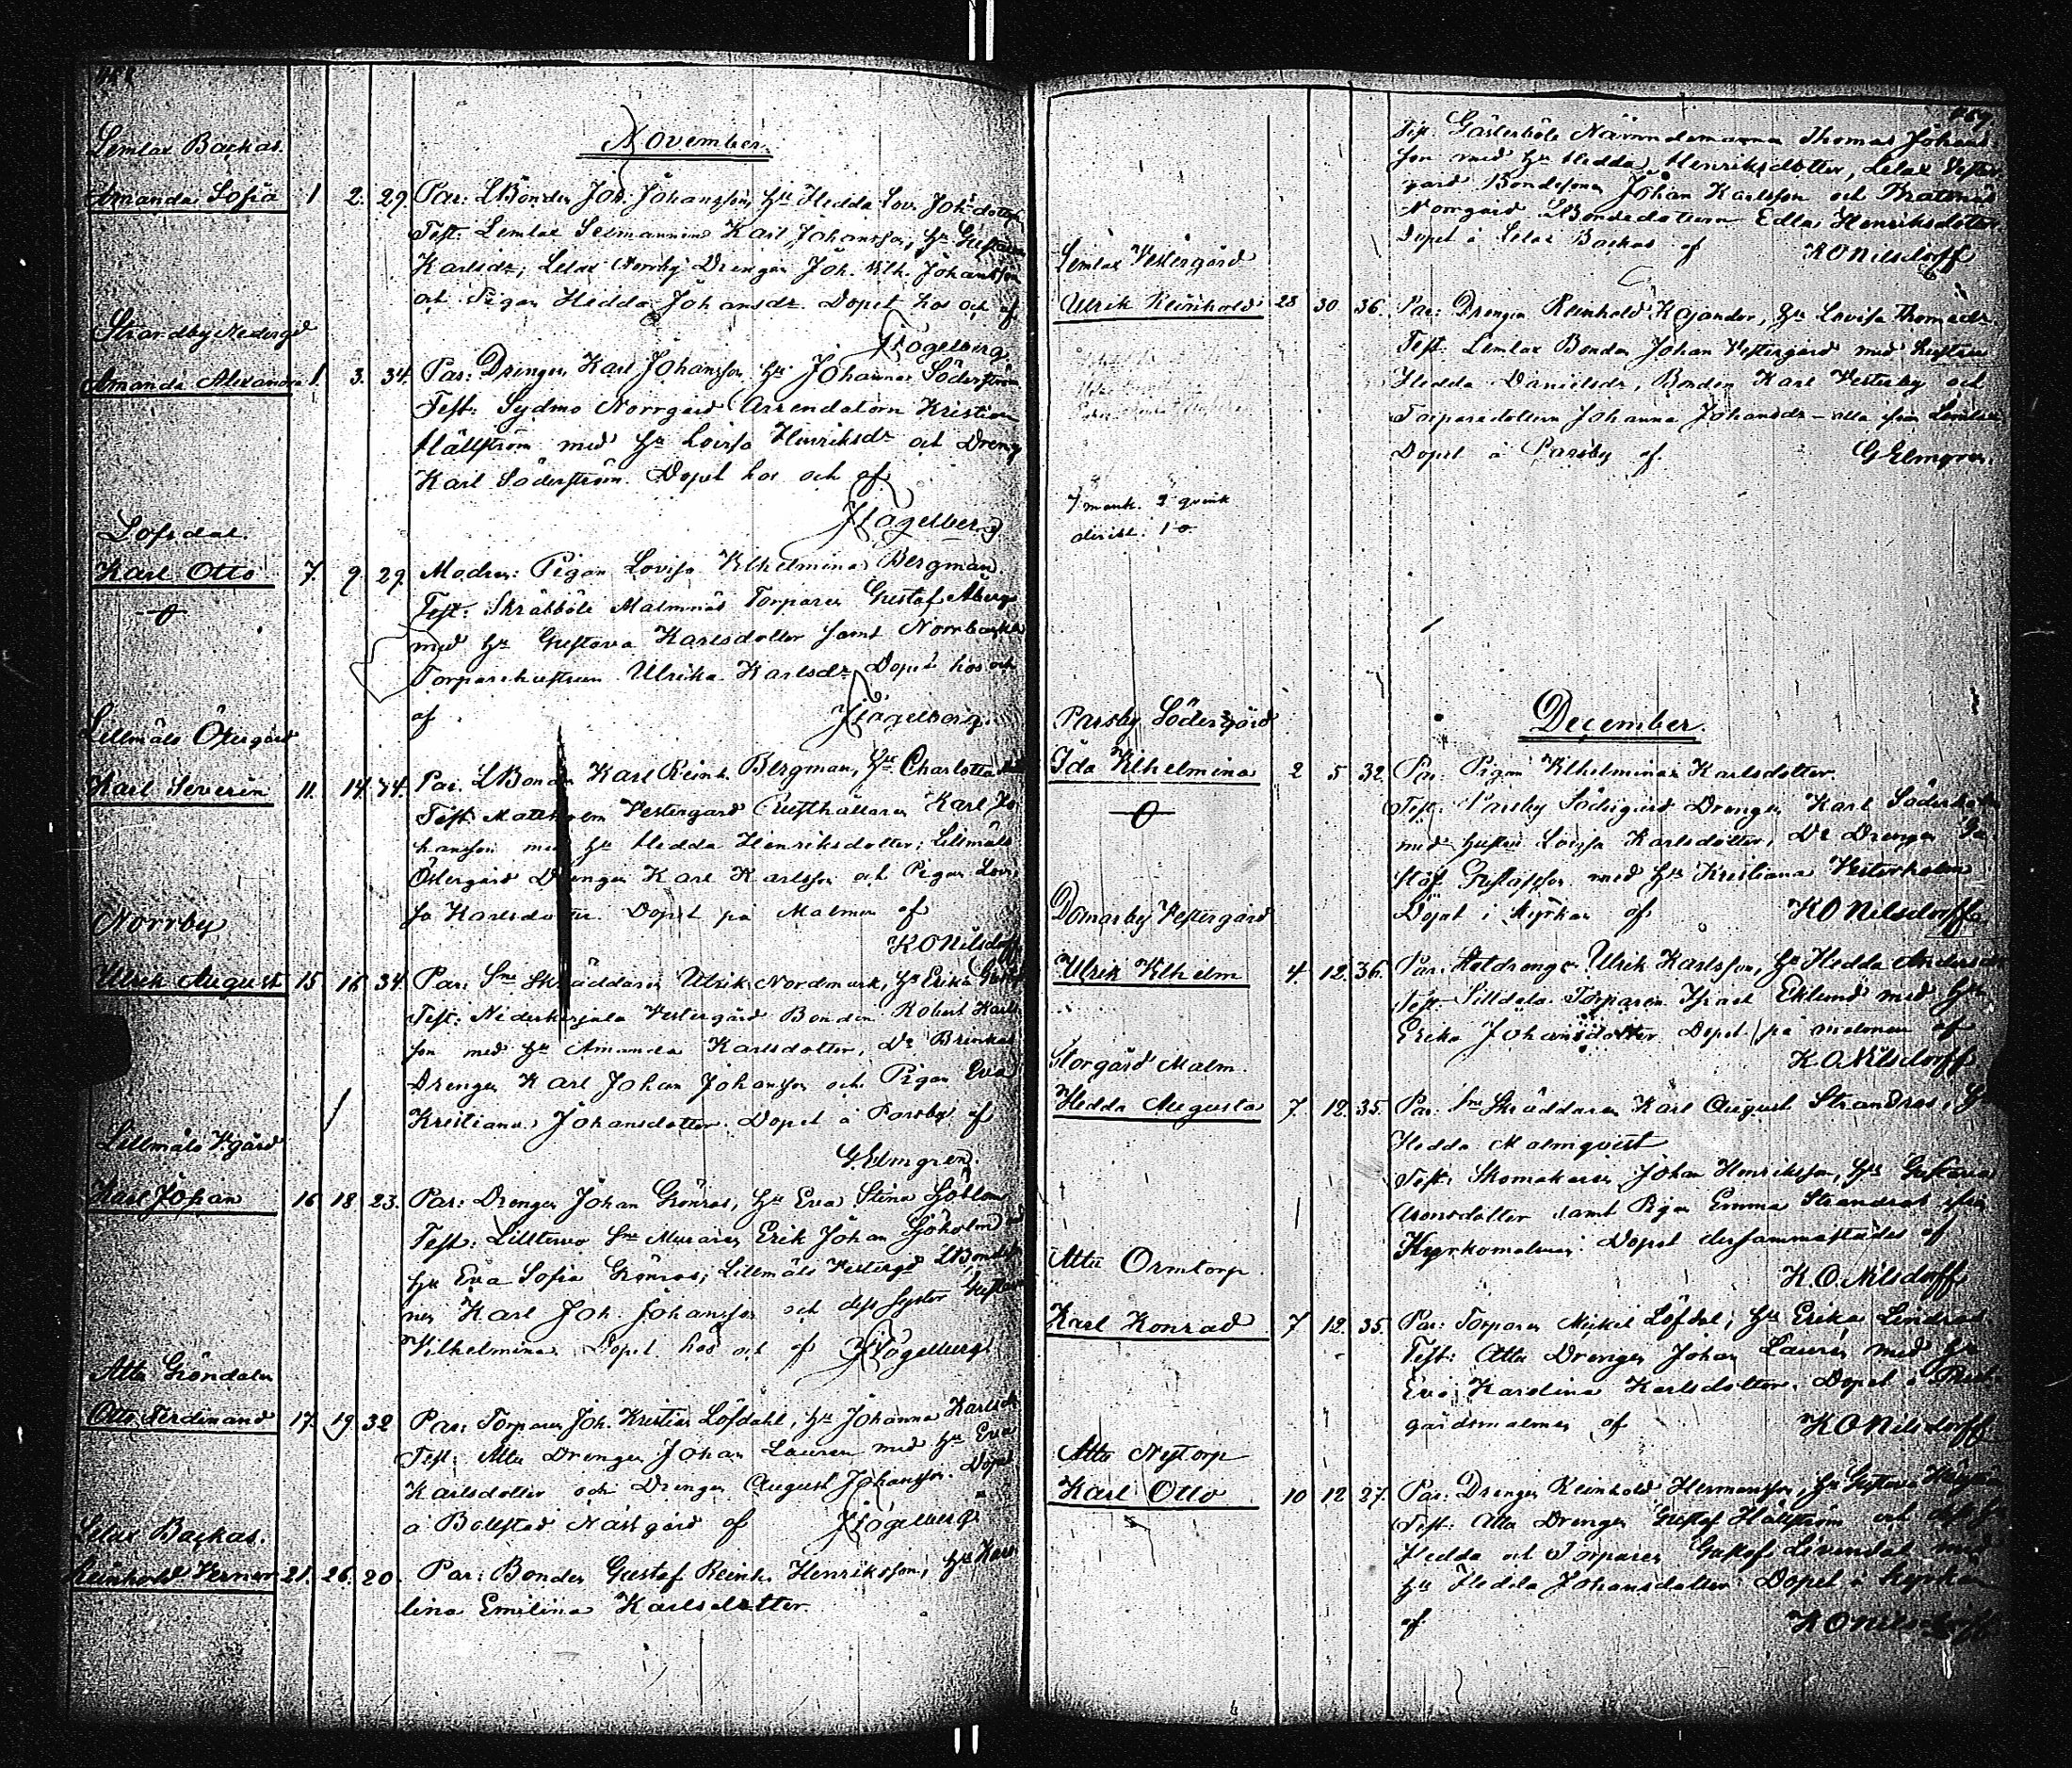 Lemlax Backas.
November.
Amanda Sofia 1 2. 29. Par: LBonden Joh. Johansson, Hu Hedda Lov. Johsdotter
Test: Lemlax Karl Johansson, Hu
Karlsdr, Lelax Norrby Drengen Joh. Vilh. Johansson
och Pigan Hedda Johansdr. Dopet hos och af
Fogelberg
Strandby Nedergd
Amanda Alexandra 1. 3. 34. Par: Drengen Karl Johansson, Hu Johanna Söderström
Test: Sydmo Norrgård Arrendatorn Kristian
Hällström med Hu Lovisa Hinriksdr och Dreng
Karl Söderström. Dopet hos och af
Fogelberg
Lofsdal.
Karl Otto 7. 9. 29. Modren: Pigan Lovisa Vilhelmina Bergman.
Test: Skräbböle Malmnäs Torparen Gustaf Åberg
med Hu Gustava Karlsdotter samt Norrbacka
Torparehustrun Ulrika Karlsdr. Dopet hos och
af Fogelberg.
Lillmälö Östergård
Karl Severin 11. 14. 34. Par. LBonden Karl Reinh. Bergman, Hu Charlotta
Test: Mattholm Vestergård Rusthållaren Karl Jo
hansson med Hu Hedda Henriksdotter; Lillmälö
Östergård Drengen Karl Karlsson och Pigan Lovi
sa Karlsdotter. Dopet på Malmen af
K O Nilsdorff
Norrby
Ulrik August 15. 16. 34. Par: Sne Skräddaren Ulrik Nordmark, Hu Erika
Test: Vestergård Bonden Robert Karls
son med Hu Amanda Karlsdotter, Do Brinkas
Drengen Karl Johan Johansson och Pigan Eva
Kristiana Johansdotter. Dopet å Parsby af
G Elmgren.
Lillmälö V.gård
Karl Johan 16 18 23. Par: Drengen Johan Grönros, Hu Eva Stina Sjöblom
Test: Lilltervo Sne Muraren Erik Johan Sjöholm med
Hu Eva Sofia Grönros; Lillmälö Vestergd LBondeso
nen Karl Joh. Johansson och dess syster Gustava
Vilhelmina. Dopet hos och af Fogelberg.
Attu Gröndalen
Otto Ferdinand 17. 19. 32 Par: Torparen Joh. Kristian Löfdahl, Hu Johanna Karlsdr
Test: Attu Drengen Johan Lauren med Hu Eva
Karlsdotter och Drengen August Johansson. Dopet
å Bollstad Näsgård af Fogelberg
Lelax Backas.
Reinhold Verner 21. 26. 20. Par: Bonden Gustaf Reinh. Henriksson, Hu Karo
lina Emilina Karlsdotter.
Test. Gästerböle Nämndemannen Thomas Johans
son med Hu Hedda Henriksdotter, Lelax Vester
gård Bondesonen Johan Karlsson och
Norrgård LBondedottern Edla Henriksdotter
Dopet å Lelax Backas af K O Nilsdorff
Lemlax Vestergård
Ulrik Reinhold 28 30 36. Par: Drengen Reinhold Kajander, Hu Lovisa Thomasdr.
Test: Lemlax Bonden Johan Vestergård med hustru
Hedda Danielsdr, Bonden Karl Vesterby och
Torparedottern Johanna Johansdr – alla från Lemlax
Dopet å Parsby af G Elmgren.
7 mank. 2 qvink
deribl. 1 o
December.
Parsby Södergård
Ida Vilhelmina 2 5 32. Par: Pigan Vilhelmina Karlsdotter.
Test: Parsby Södergård Drengen Karl Söderholm
med hustru Lovisa Karlsdotter, Do Drengen Gu
staf Gustafsson med Hu Kristiana Vesterholm
Döpet i Kyrkan af K O Nilsdorff
Domarby Vestergård
Ulrik Vilhelm 4. 12. 36. Par: Ulrik Karlsson, Hu Hedda Andersdr
Test: Silldala Torparen Eklund med Hu
Erika Johansdotter. Dopet på malmen af
K. O Nilsdorff
Storgård Malm.
Hedda Augusta 7 12. 35. Par: Sne Skräddaren Karl August Strandros, H
Hedda Malmqvist
Test: Skomakaren Johan Henriksson, Hu Gustava
Aronsdotter samt Pigan Emma Strandros från
Kyrkomalmen. Dopet dersammastädes af
K. O. Nilsdorff
Attu Ormtorp
Karl Konrad 7 12. 35. Par: Torparen Mickel Löfdal, Hu Erika Lindros
Test: Attu Drengen Johan Lauren med Hu
Eva Karolina Karlsdotter. Dopet å Prest
gårdsmalmen af K O Nilsdorff
Attu Nytorp
Karl Otto 10 12 27. Par: Drengen Reinhold Hermansson, Hu Gustava
Test: Attu Drengen Gustaf Hällström och dess Hu
Hedda och Torparen Gustaf Livendal med
Hu Hedda Johansdotter. Dopet i kyrkan
af K O Nilsdorff